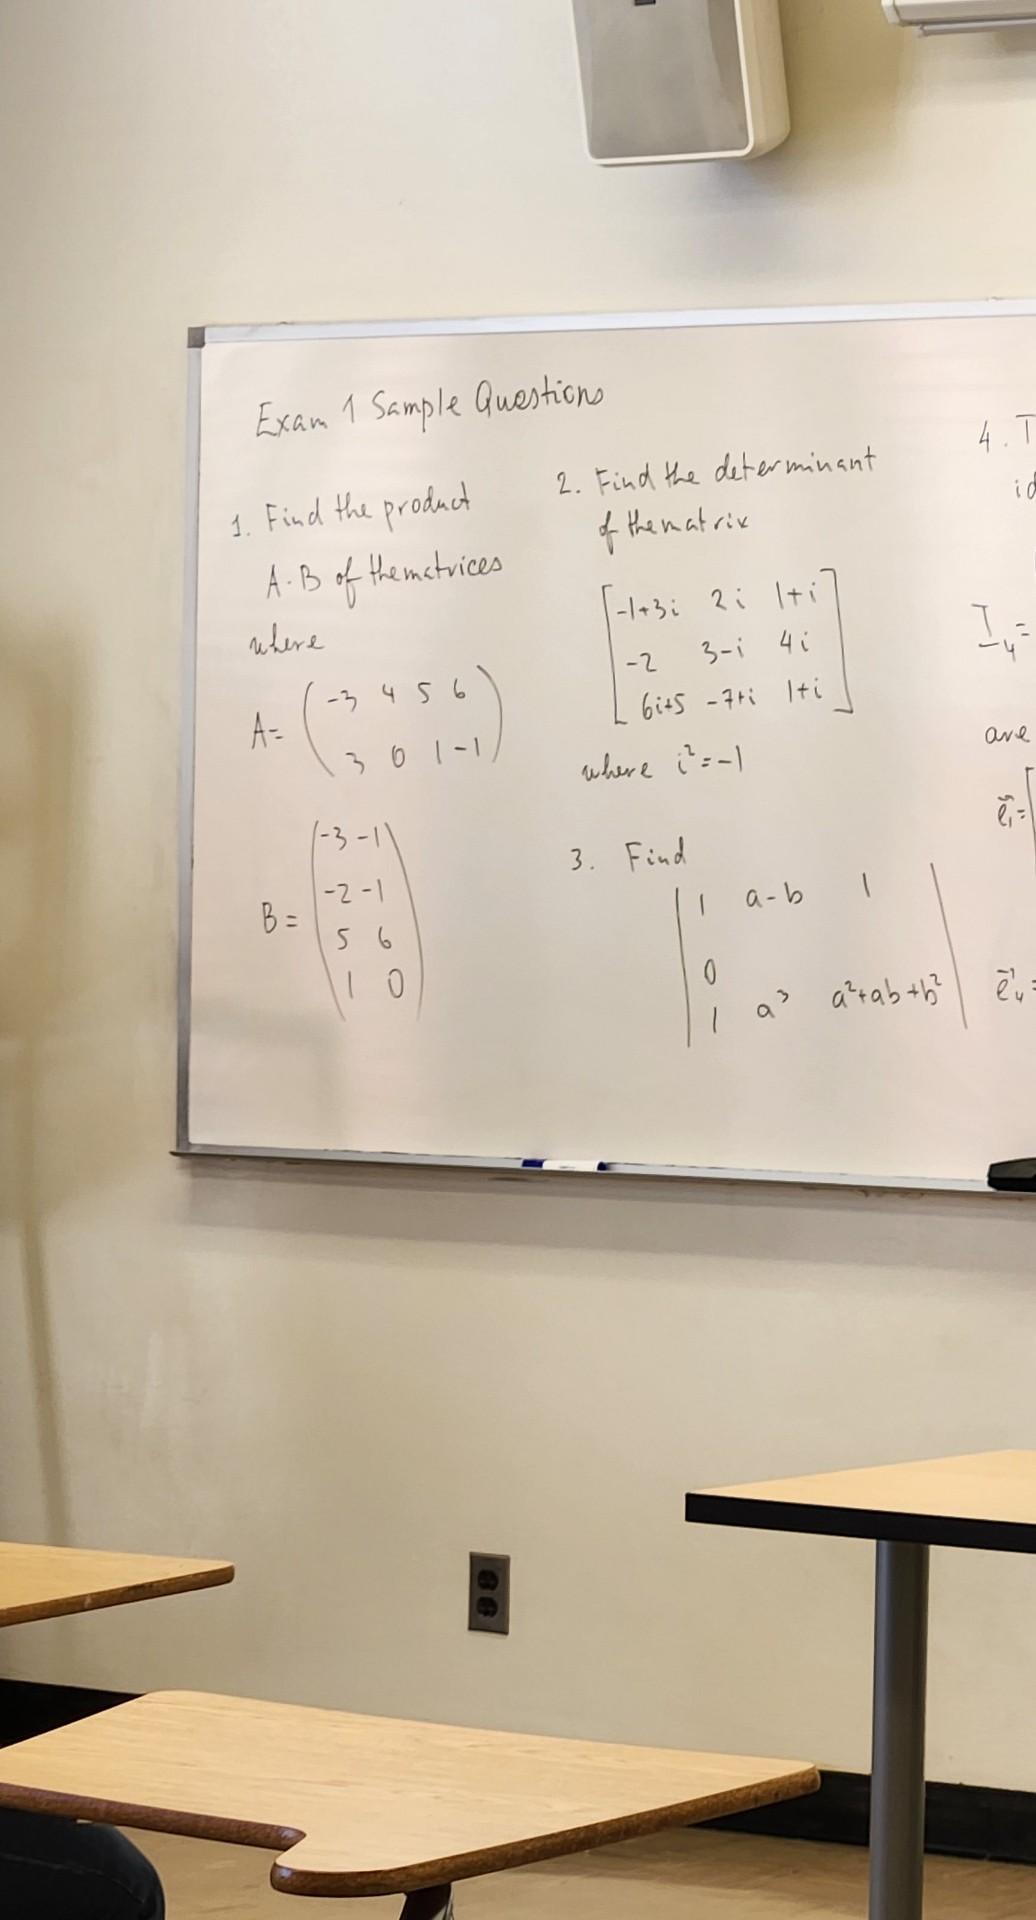 Exam 1 Sample Questions
1. Find the product
A·B of the matrices
where
A= ( -3 4 5 6
3 0 1 -1 )
B = ( -3 -1
-2 -1
5 6
1 0 )
2. Find the determinant
of the matrix
[ -1+3i 2i 1+i
-2 3-i 4i
6i+5 -7+i 1+i ]
where i²=-1
3. Find
| 1 a-b 1 |
0
1 a³ a²+ab+b²
4. T
id
I₄=
are
e⃗₁=[
e⃗₄=